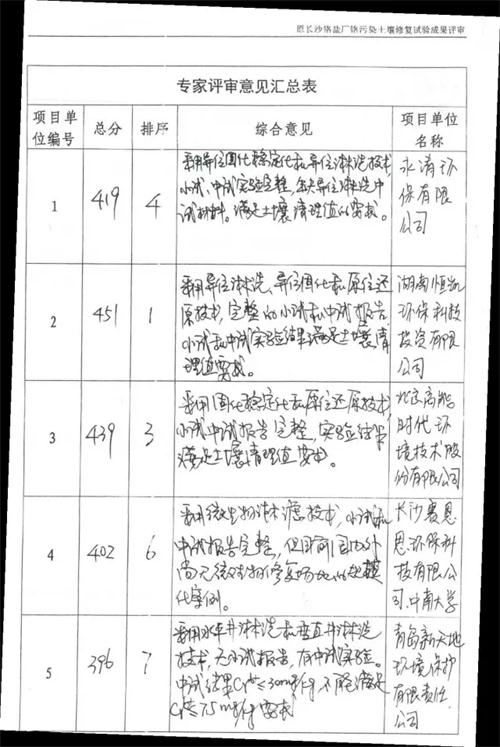 原长沙铬盐厂铬污染土壤修复试验成果评审
专家评审意见汇总表
项目单位编号 总分 排序 综合意见 项目单位名称
1 419 4
采用异位固化稳定化和异位淋洗技术,
小试、中试实验完整,缺失异位淋洗中
试材料。满足土壤清理值的要求。
永清环
保有限
公司
2 451 1
采用异位淋洗、异位固化和原位还
原技术,完整的小试和中试报告
小试和中试实验结果满足土壤清
理值要求。
湖南恒凯
环保科技
投资有限
公司
3 439 3
采用固化稳定化和原位还原技术,
小试中试报告完整,实验结果
满足土壤清理值要求。
北京高能
时代环
境技术股
份有限公司
4 402 6
采用微生物淋滤技术,小试和
中试报告完整,但目前国内外
尚无微生物修复场地的规模
化案例。
长沙赛恩
思环保科
技有限公
司、中南大学
5 396 7
采用水平井淋洗和垂直井淋洗
技术,无小试报告,有中试实验。
中试结果Cr⁶⁺≤30mg/kg 不能满足
Cr⁶⁺≤7.5mg/kg要求
青岛新天地
环境保护
有限责任
公司